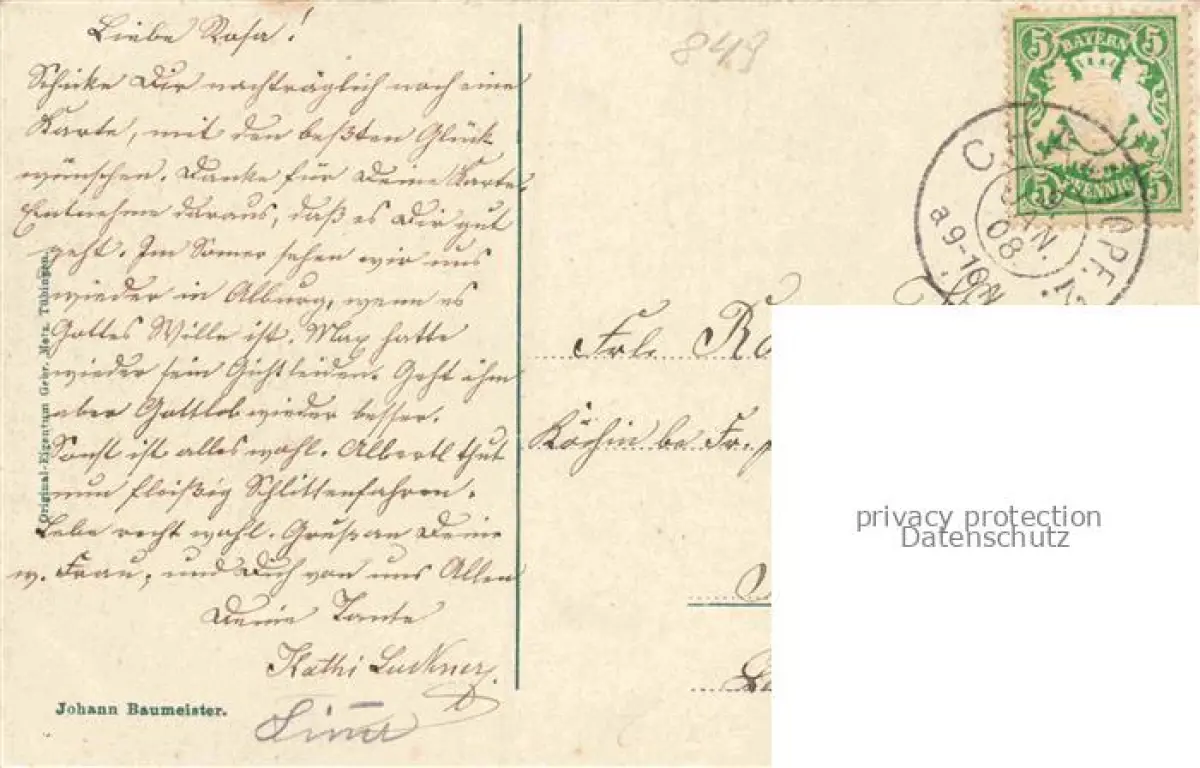 Liebe Rosa!
Schicke Dir nachträglich noch eine
Karte, mit den beßten Glück
wünschen. Danke für Deine Karte
Entnehme daraus, daß es Dir gut
geht. Im Somer sehen wir uns
wieder in Alburg, wenn es
Gottes Wille ist. Max hatte
wieder sein Gichtleiden. Geht ihm
aber Gottlob wieder besser.
Sonst ist alles wohl. Albertl thut
nun fleißig Schlittenfahren.
Lebe recht wohl. Gruß an Deine
w. Frau, und Dich von uns Allen
Deine Tante
Kathi Luckner.
Johann Baumeister.
Original-Eigentum Gebr. Metz, Tübingen.
849
5 BAYERN 5
5 PFENNIG 5
JAN.
08.
a 9-10 N
Frl. Ro
Köchin be Fr.
privacy protection
Datenschutz